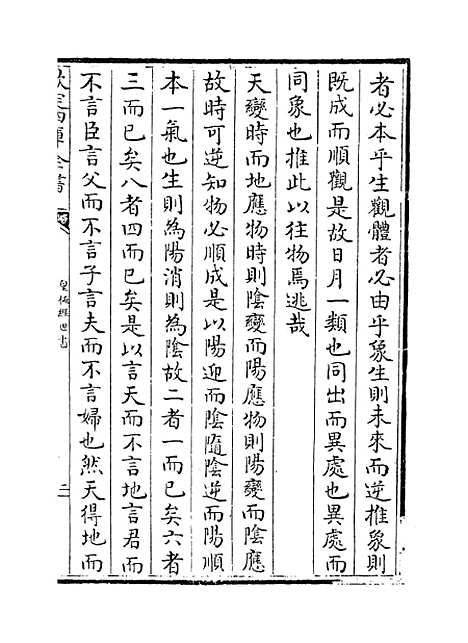 者必本乎生觀體者必由乎象生則未來而逆推象則
既成而順觀是故日月一類也同出而異處也異處而
同象也推此以往物焉逃哉
天變時而地應物時則陰變而陽應物則陽變而陰應
故時可逆知物必順成是以陽迎而陰隨陰逆而陽順
本一氣也生則為陽消則為陰故二者一而已矣六者
三而已矣八者四而已矣是以言天而不言地言君而
不言臣言父而不言子言夫而不言婦也然天得地而
欽定四庫全書
皇極經世書
二